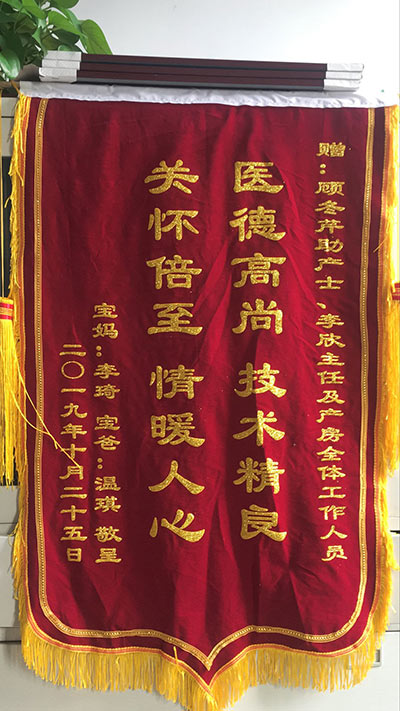 赠：顾冬芹助产士、李欣主任及产房全体工作人员
医德高尚 技术精良
关怀倍至 情暖人心
宝妈：李琦 宝爸：温琪 敬呈
二〇一九年十月二十五日